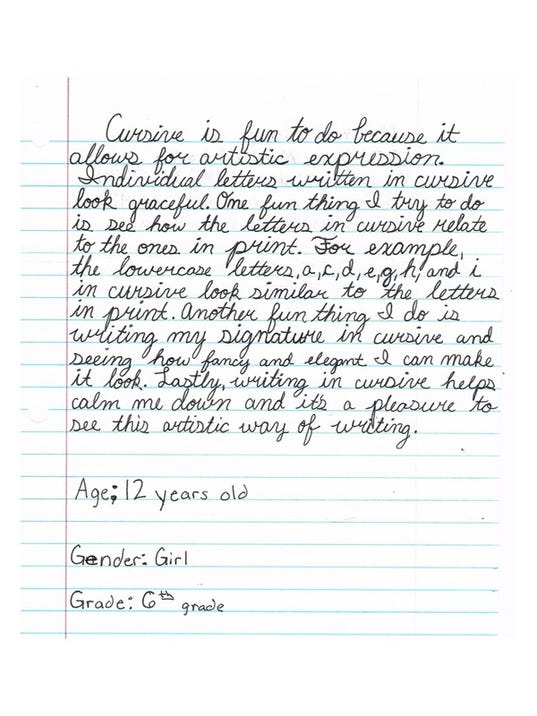 Cursive is fun to do because it
allows for artistic expression.
Individual letters written in cursive
look graceful. One fun thing I try to do
is see how the letters in cursive relate
to the ones in print. For example,
the lowercase letters, a, c, d, e, g, h, and i
in cursive look similar to the letters
in print. Another fun thing I do is
writing my signature in cursive and
seeing how fancy and elegant I can make
it look. Lastly, writing in cursive helps
calm me down and it's a pleasure to
see this artistic way of writing.
Age: 12 years old
Gender: Girl
Grade: 6th grade